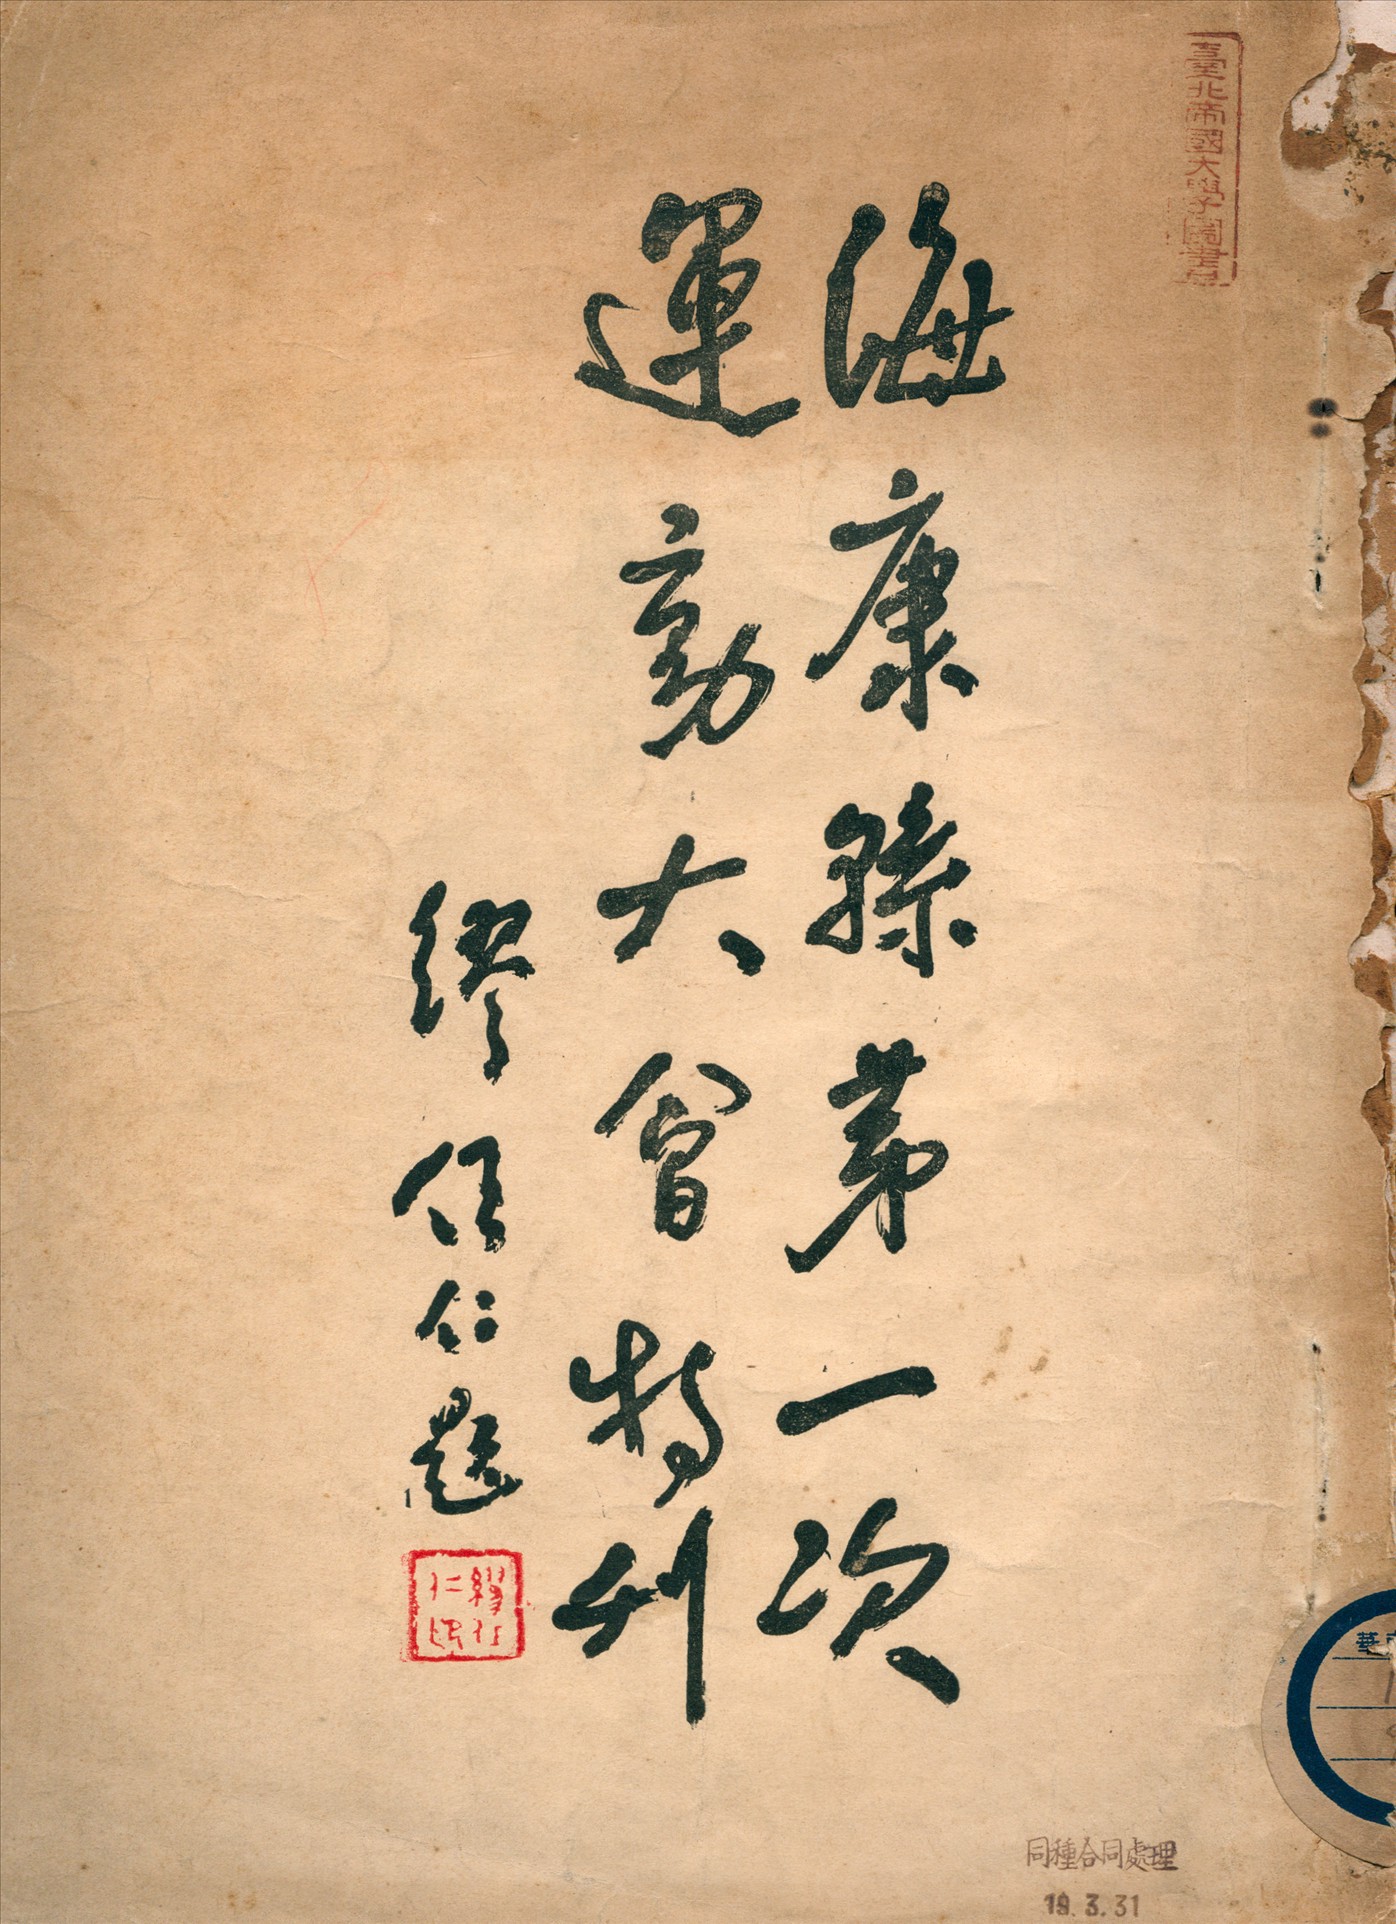 臺北帝國大學圖書
海康縣第一次
運動大會特刊
繆任仁題
繆任
仁印
華
同種合同處理
19.3.31